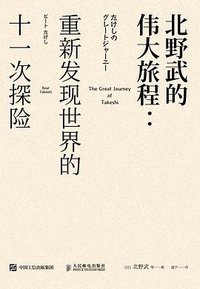 北野武的
伟大旅程：
たけしの
グレートジャーニー
The Great Journey
of
Takeshi
重新发现世界的
十一次探险
Beat
Takeshi
ビートたけし
中国工信出版集团
人民邮电出版社
POSTS & TELECOM PRESS
[日] 北野武 等一著